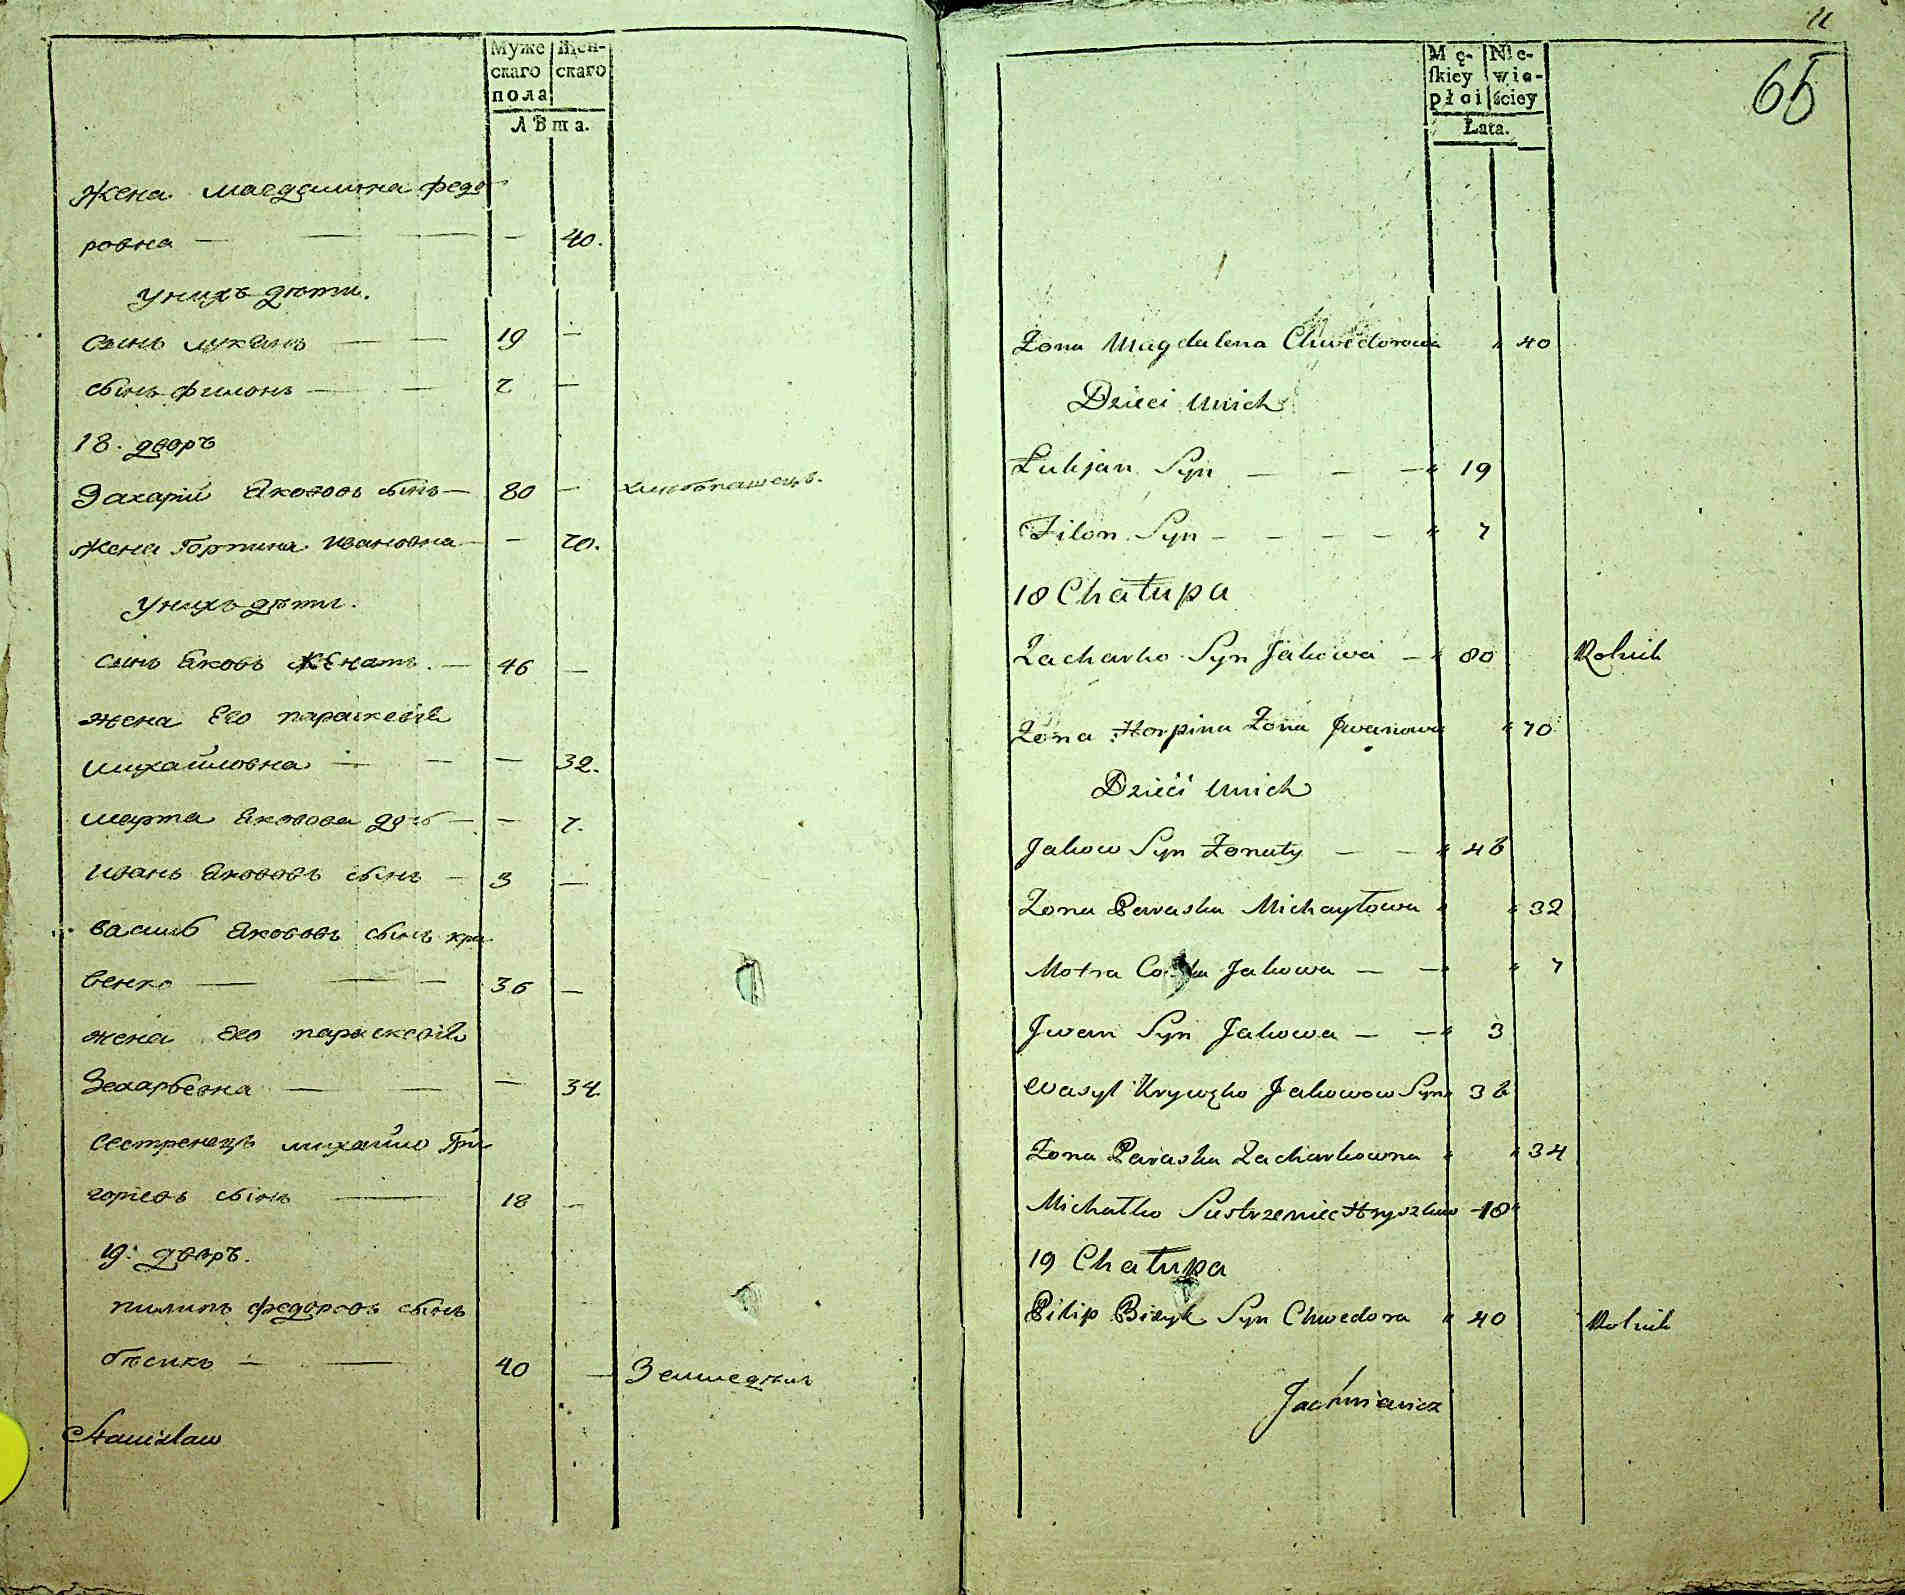 Муже
скаго
пола
Жен-
скаго
Лѣта.
Жена Магдалина Федо
ровна — — — — 40.
У нихъ дѣти.
Сынъ лукянъ — — 19 —
сынъ филонъ — — 7 —
18. дворъ
Захарій Якововъ сынъ — 80 — хлѣбопашецъ.
Жена Горпина Ивановна — — 70.
У нихъ дѣти.
Сынъ Яковъ жЕнатъ. — 46 —
жена Его параскевія
михайловна — — — 32.
марта Яковова дочь — — 7.
Иванъ Якововъ сынъ — 3 —
василь Якововъ сынъ кра
венко — — — 36 —
жена Его параскевія
Захарьевна — — — 34
Сестренецъ михайло Гри
горіевъ сынъ — 18 —
19. дворъ.
пилипъ федоровъ сынъ
бѣсикъ — — 40 — Земледѣлъ
Stanisław
11
65
Mę-
ſkiey
płci
Nie-
wie-
ściey
Lata.
Żona Magdalena Chwedorowa " 40
Dzieci Unich
Łukjan Syn — — — " 19
Filon Syn — — — — " 7
18 Chałupa
Zacharko Syn Jakowa — " 80 Rolnik
Żona Horpina Żona Jwanowa " 70
Dzieci Unich
Jakow Syn Żonaty — — " 46
Żona Paraska Michayłowa " " 32
Motra Corka Jakowa — — " 7
Jwan Syn Jakowa — — " 3
Wasyl Krywęko Jakowow Syn " 36
Żona Paraska Zacharkowna " " 34
Michałko Siestrzeniec Hryszków — 18 "
19 Chałupa
Pilip Bizyk Syn Chwedora " 40 Rolnik
Jachniewicz